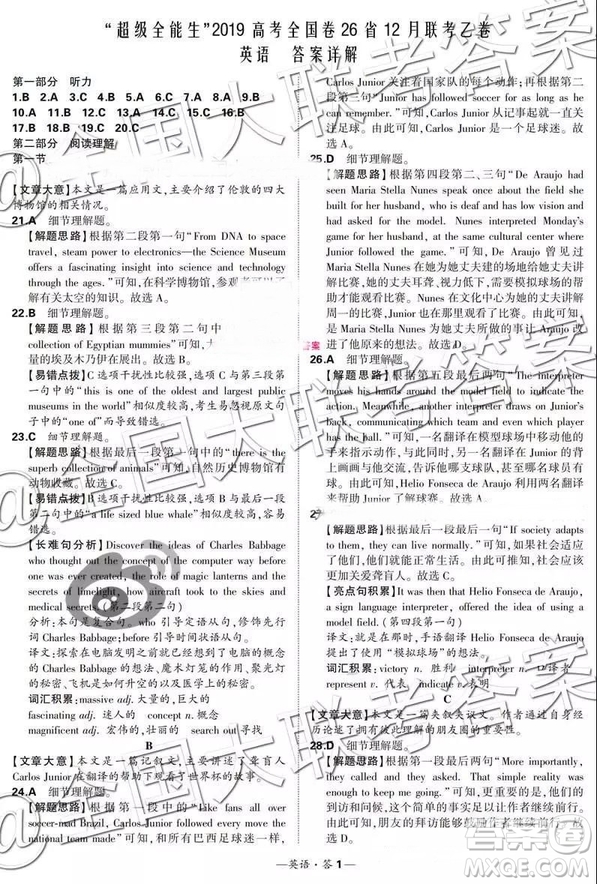 “超级全能生”2019高考全国卷26省12月联考乙卷
英语 答案详解
第一部分 听力
1.B 2.A 3.C 4.B 5.C 6.C 7.A 8.A 9.B
10.A 11.C 12.B 13.A 14.C 15.C 16.B
17.B 18.B 19.C 20.C
第二部分 阅读理解
第一节
A
【文章大意】本文是一篇应用文,主要介绍了伦敦的四大
博物馆的相关情况。
21.A 细节理解题。
【解题思路】根据第二段第一句“From DNA to space
travel, steam power to electronics—the Science Museum
offers a fascinating insight into science and technology
through the ages.”可知,在科学博物馆,
解有关太空的知识。故选A。
22.B 细节理解题。
【解题思路】根据第三段第二句中
collection of Egyptian mummies”可知,
量的埃及木乃伊在展出。故选B。
【易错点拨】选项C干扰性比较强,选项C与第三段第
一句中的“this is one of the oldest and largest public
museums in the world”相似度较高,考生易忽视原文句
子中的“one of”而导致错选。
23.C 细节理解题。
【解题思路】根据最后一段第一句中的“there is the
surreal collection of animals”可知,自然历史博物馆有
动物收藏。故选C。
【易错点拨】选项B干扰性比较强,选项B与最后一段
第一句中的“a life sized blue whale”相似度较高,容易
错选。
【长难句分析】Discover the ideas of Charles Babbage
who thought out the concept of the computer way before
one was ever created, the role of magic lanterns and the
secrets of limelight, how aircraft took to the skies and
medical
(第二段第二句)
分析:本句是复合句。who引导定语从句,修饰先行
词Charles Babbage;before引导时间状语从句。
译文:探索在电脑发明之前就有了电脑的概念的
Charles Babbage的想法、魔术灯笼的作用、聚光灯
的秘密、飞机是如何升空的以及医学上的传奇。
词汇积累:massive adj. 大量的,巨大的
fascinating adj. 迷人的 concept n. 概念
magnificent adj. 宏伟的,壮丽的 search out 寻找
B
【文章大意】本文是一篇记叙文,主要讲述了聋盲人
Carlos Junior在翻译的帮助下观看了世界杯的故事。
24.A 细节理解题。
【解题思路】根据第二段第一句“Like fans all over
soccer-mad Brazil, Carlos Junior followed every move the
national team made”可知,和所有巴西足球迷一样,
Carlos Junior关注着国家队的每个动作。根据第二段
第三句“Junior has followed soccer for as long as he
can remember.”可知,Carlos Junior从记事起就一直关
注足球。由此可知,Carlos Junior是一个足球迷。故
选A。
25.D 细节理解题。
【解题思路】根据第四段第二、三句“De Araujo had
seen Maria Stella Nunes speak once about the field she
built for her husband, who is deaf and has low vision and
had asked for the model. Nunes interpreted Monday's
game for her husband, at the same cultural center where
Junior followed the match.”可知,De Araujo曾见过
Maria Stella Nunes在为她丈夫建的场地给她丈夫讲
解比赛。她丈夫耳聋、视力低下,需要模拟球场的帮
助才能观看比赛。Nunes在文化中心为她丈夫讲解
周一的比赛,Junior也在那里观看了比赛。由此可
知,Maria Stella Nunes对她丈夫的帮助让De Araujo改
进了他原来的想法。故选D。
答案
26.A 细节理解题。
【解题思路】根据第五段最后两句“The interpreter
moves his hands around the model to indicate the
action. Meanwhile, another interpreter draws on Junior's
back, communicating which team and even which player
has the ball.”可知,一名翻译在模型球场中移动他的
手来指示动作,与此同时,另一名翻译在Junior的背
上画画与他交流,告诉他哪支球队、甚至哪名球员有
球。由此可知,Helio Fonseca de Araujo利用两名翻
译帮助Junior了解球赛。故选A。
2
【解题思路】根据最后一段最后一句“If society adapts
to them, they can live normally.”可知,如果社会适应
了他们,他们就能正常生活。由此可推知,社会应更
加关爱聋盲人。故选C。
【亮点句积累】It was then that Helio Fonseca de Araujo,
a sign language interpreter, offered the idea of using a
model field.(第三段最后一句)
译文:就在那时,手语翻译Helio Fonseca de Araujo
提出了使用模拟球场的想法。
词汇积累:victory n. 胜利 indicate v. 指示,表明
represent v. 代表
C
【文章大意】本文是一篇夹叙夹议文。文章主要通过作
者的经历讲述了拥有彼此理解的朋友圈的重要性。
28.D 细节理解题。
【解题思路】根据第一段最后两句“More importantly,
they called and dropped by. That simple reality was
enough to keep me going.”可知,更重要的是,他们的
到访和问候,这个简单的事实足以让作者继续前行。
由此可知,朋友的问候和拜访帮助了作者继续前行。
—英语·答1—
@全国大联考答案
答案圈
MXQE.COM